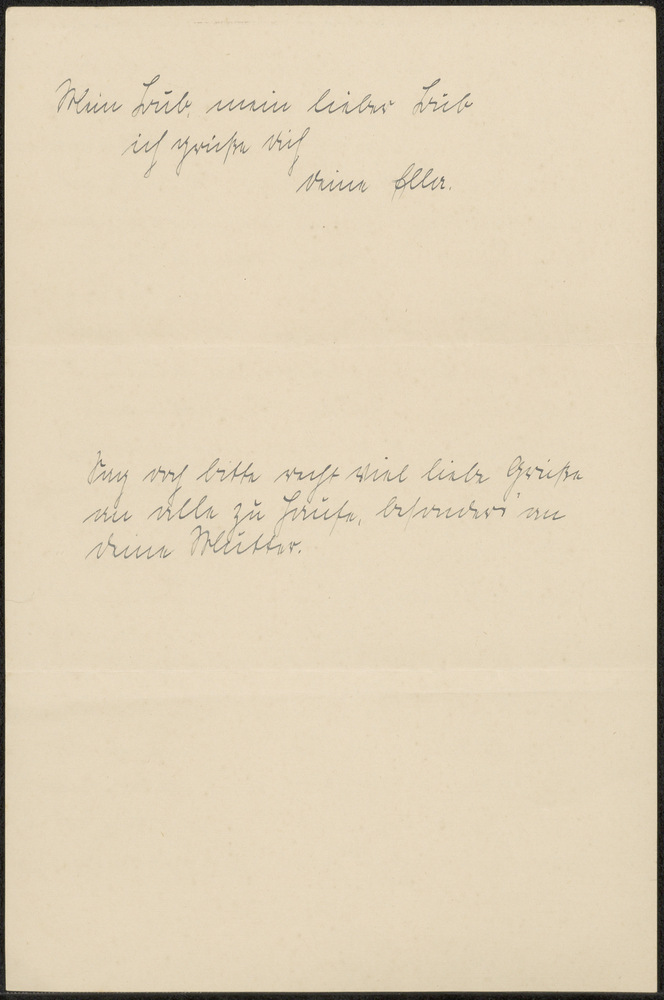 Mein Bub, mein lieber Bub
ich grüße dich
deine Ella.
Sag doch bitte recht viel liebe Grüße
an alle zu Hause, besonders an
deine Mutter.